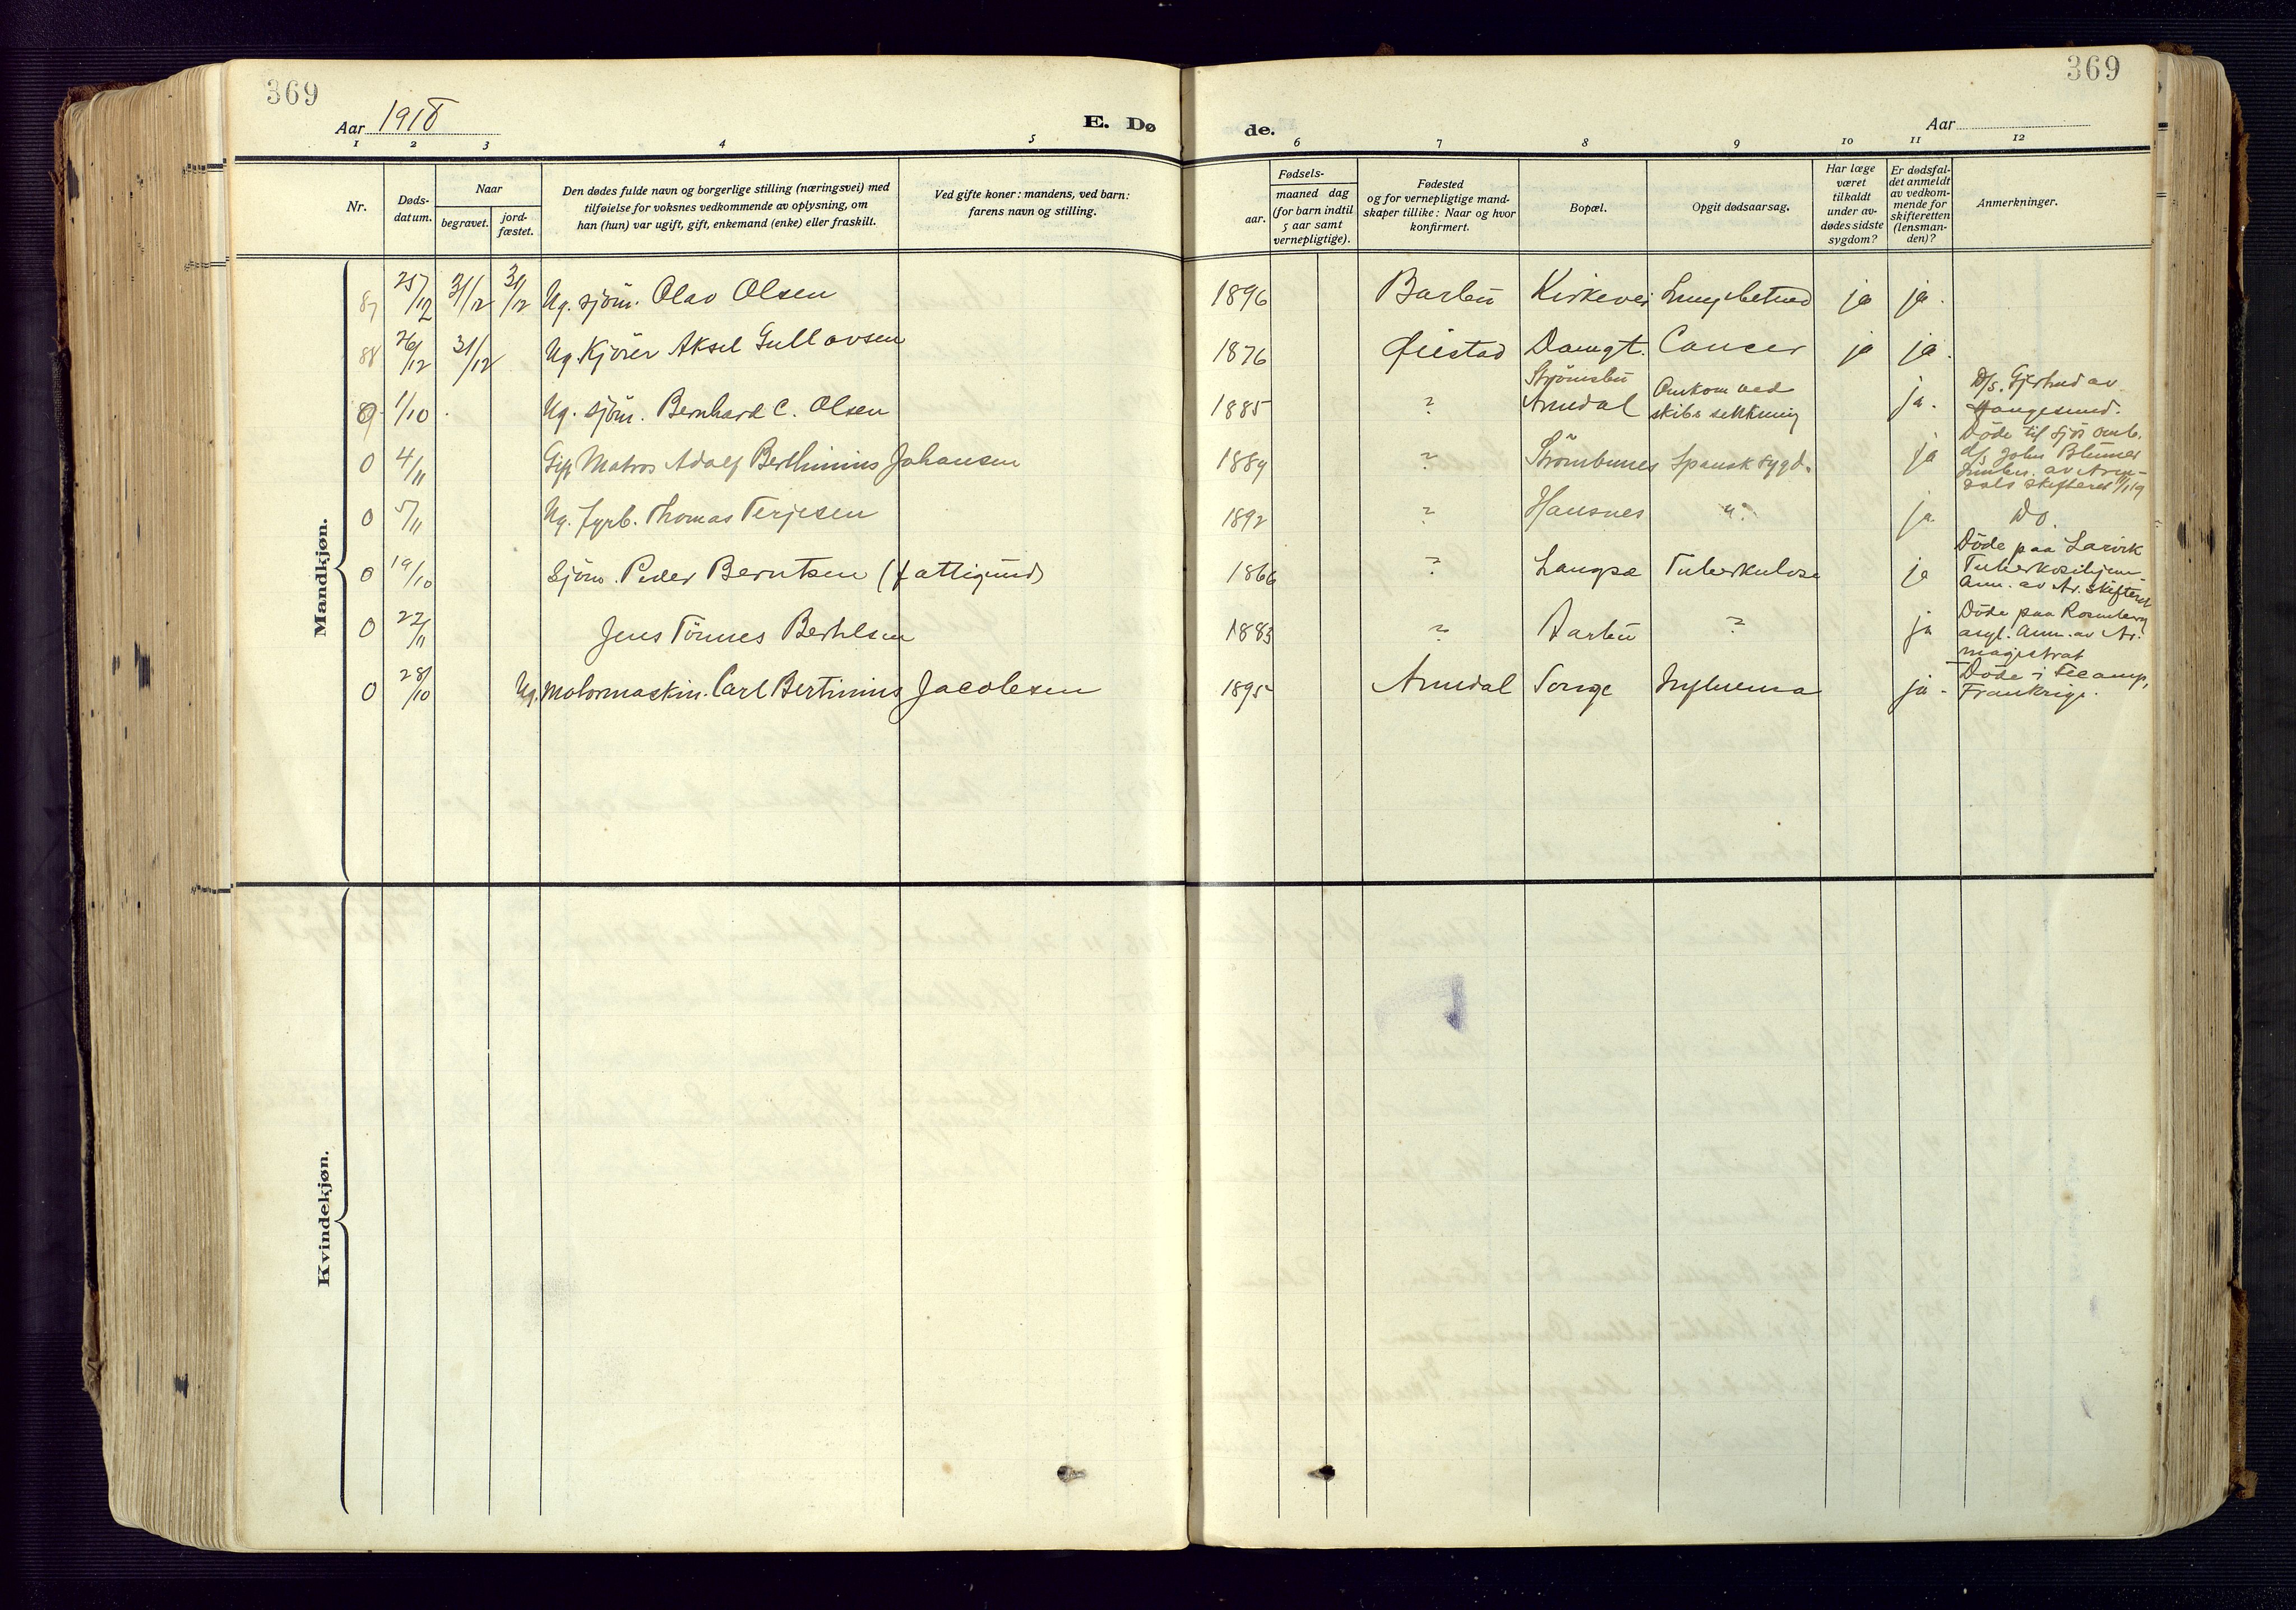 369
369
Aar 1918
E. Dø
de.
Aar
1 2 3 4 5 6 7 8 9 10 11 12
Nr.
Døds-
datum.
Naar
begravet.
jord-
fæstet.
Den dødes fulde navn og borgerlige stilling (næringsvei) med
tilføielse for voksnes vedkommende av oplysning, om
han (hun) var ugift, gift, enkemand (enke) eller fraskilt.
Ved gifte koner: mandens, ved barn:
farens navn og stilling.
Fødsels-
aar.
maaned dag
(for barn indtil
5 aar samt
vernepligtige).
Fødested
og for vernepligtige mand-
skaper tillike: Naar og hvor
konfirmert.
Bopæl.
Opgit dødsaarsag.
Har læge
været
tilkaldt
under av-
dødes sidste
sygdom?
Er dødsfal-
det anmeldt
av vedkom-
mende for
skifteretten
(lensman-
den)?
Anmerkninger.
Mandkjøn.
87 25/12 31/12 31/12 Ug. sjöm. Olav Olsen 1896 Barbu Kirkevei Lungebetend ja ja.
88 26/12 31/12 Ug. Kjörer Aksel Gullovsen 1876 Øiestad Damgt. Cancer ja ja.
1/10 Ug. sjöm. Bernhard C. Olsen 1885 ? Strömsbu
Arendal Omkom ved
skibs senkning ja. D/s. Gjertrud av
Haugesund.
0 4/11 Gip Matros Adolf Berthinius Johansen 1889 ? Strömbunes Spansk sygd. ja Döde til sjös omb.
d/s John Blumer
av Aren-
dals skifteret
0 5/11 Ug. fyrb. Thomas Terjesen 1892 ? Hansnes " ja Do.
0 19/10 Sjöm. Peder Berntsen (fattigund) 1866 ? Langsæ Tuberkulose ja Döde paa Larvik
Tuberkosehjem
Anm. av Ar. skifteret
0 22/11 Jens Tönnes Berthelsen 1883 ? Barbu ? ja Döde paa Rosenberg
asyl. Anm. av Ar.
magistrat
0 28/10 Ug. Motormaskin. Carl Bertinius Jacobsen 1895 Arendal Songe Influensa ja - Döde i Fecamp,
Frankrige.
Kvindekjøn.